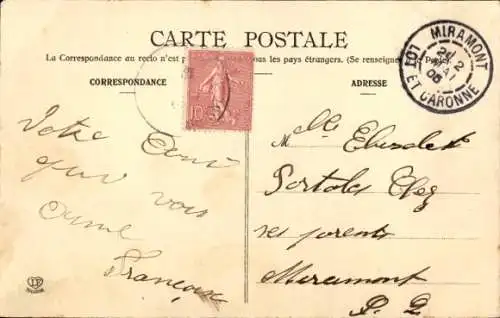 CARTE POSTALE
La Correspondance au recto n'est pas ous les pays étrangers. (Se renseigner
CORRESPONDANCE
ADRESSE
MIRAMONT
LOT ET GARONNE
10
Votre Ami
qui vous
aime
Françoise
Mlle Elisabeth
Portales Chez
ses parents
Miramont